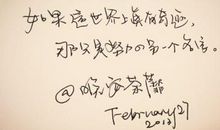 如果這世界上真有奇迹,
那只是努力的另一个名字。
@
February 27
2013